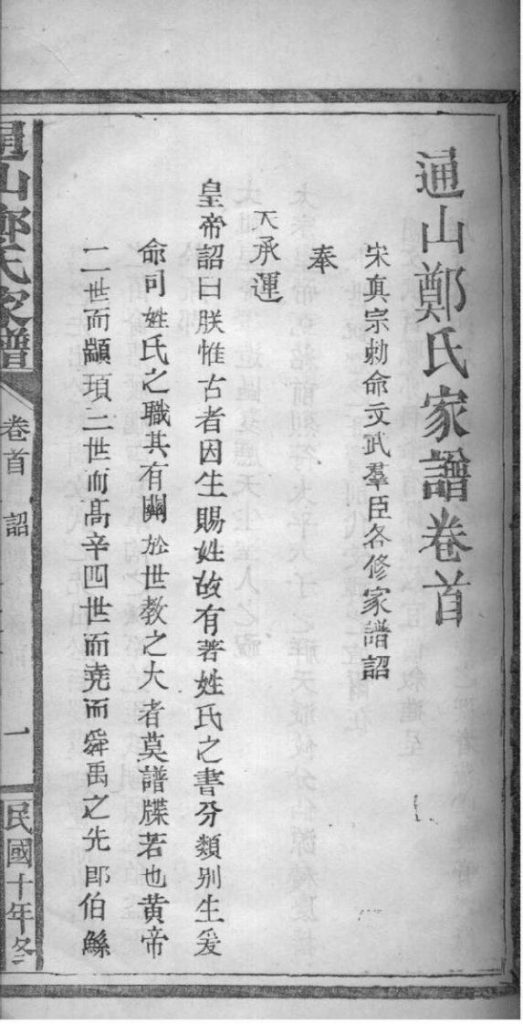 通山鄭氏家譜卷首
宋真宗勅命文武羣臣各修家譜詔
奉
天承運
皇帝詔曰朕惟古者因生賜姓故有著姓氏之書分類別生爰
命司姓氏之職其有關於世教之大者莫譜牒若也黃帝
二世而顓頊三世而高辛四世而堯而舜禹之先即伯鯀
通山鄭氏家譜
卷首
詔
一
民國十年修